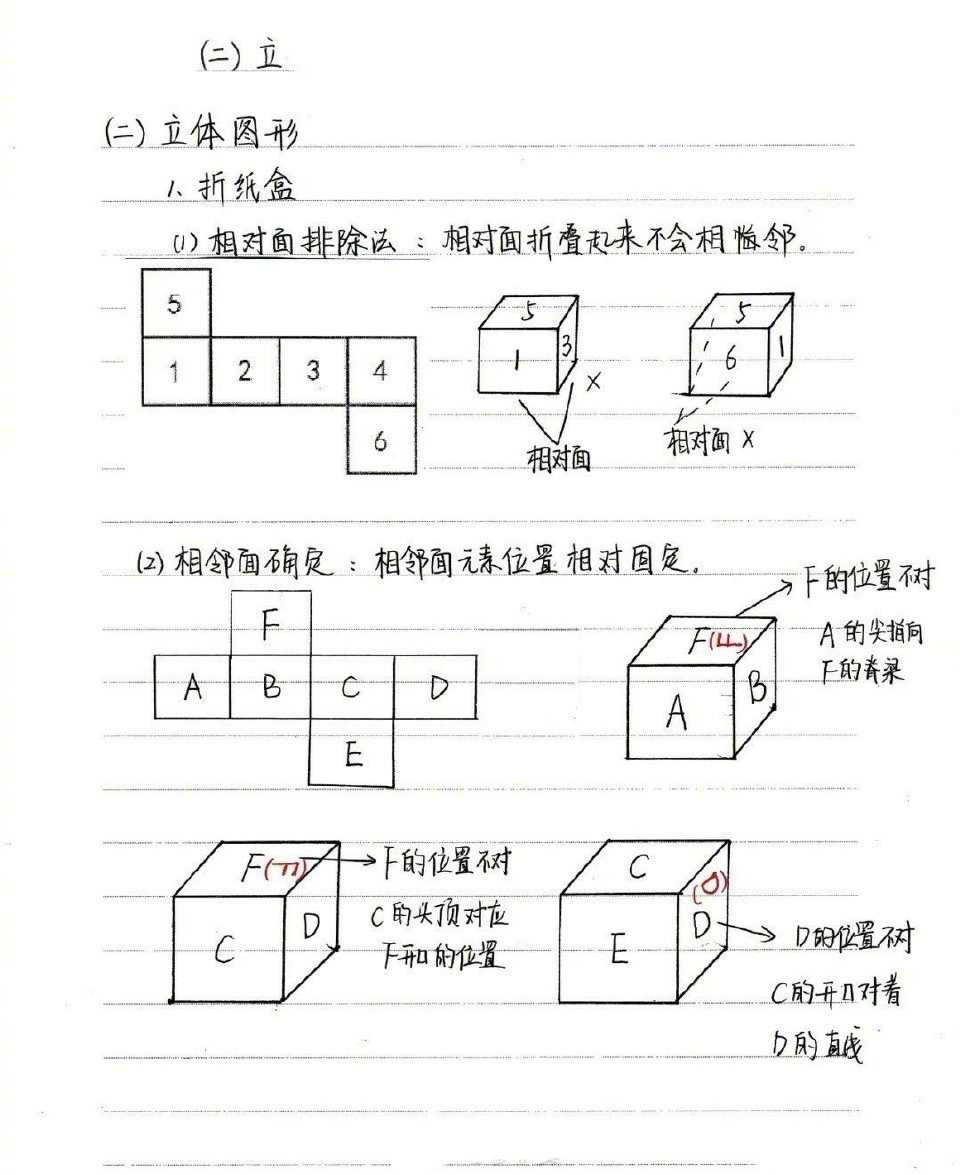 (二) 立
(二) 立体图形
1、折纸盒
(1) 相对面排除法 : 相对面折叠起来不会相临邻。
5
1 2 3 4
6
5
1 3
X
相对面
5
6 1
相对面 X
(2) 相邻面确定 : 相邻面元素位置相对固定。
F
A B C D
E
F
A B
F的位置不对
A的尖指向
F的脊梁
F
C D
F的位置不对
C的头顶对应
F开口的位置
C
E D
D的位置不对
C的开口对着
D的直线